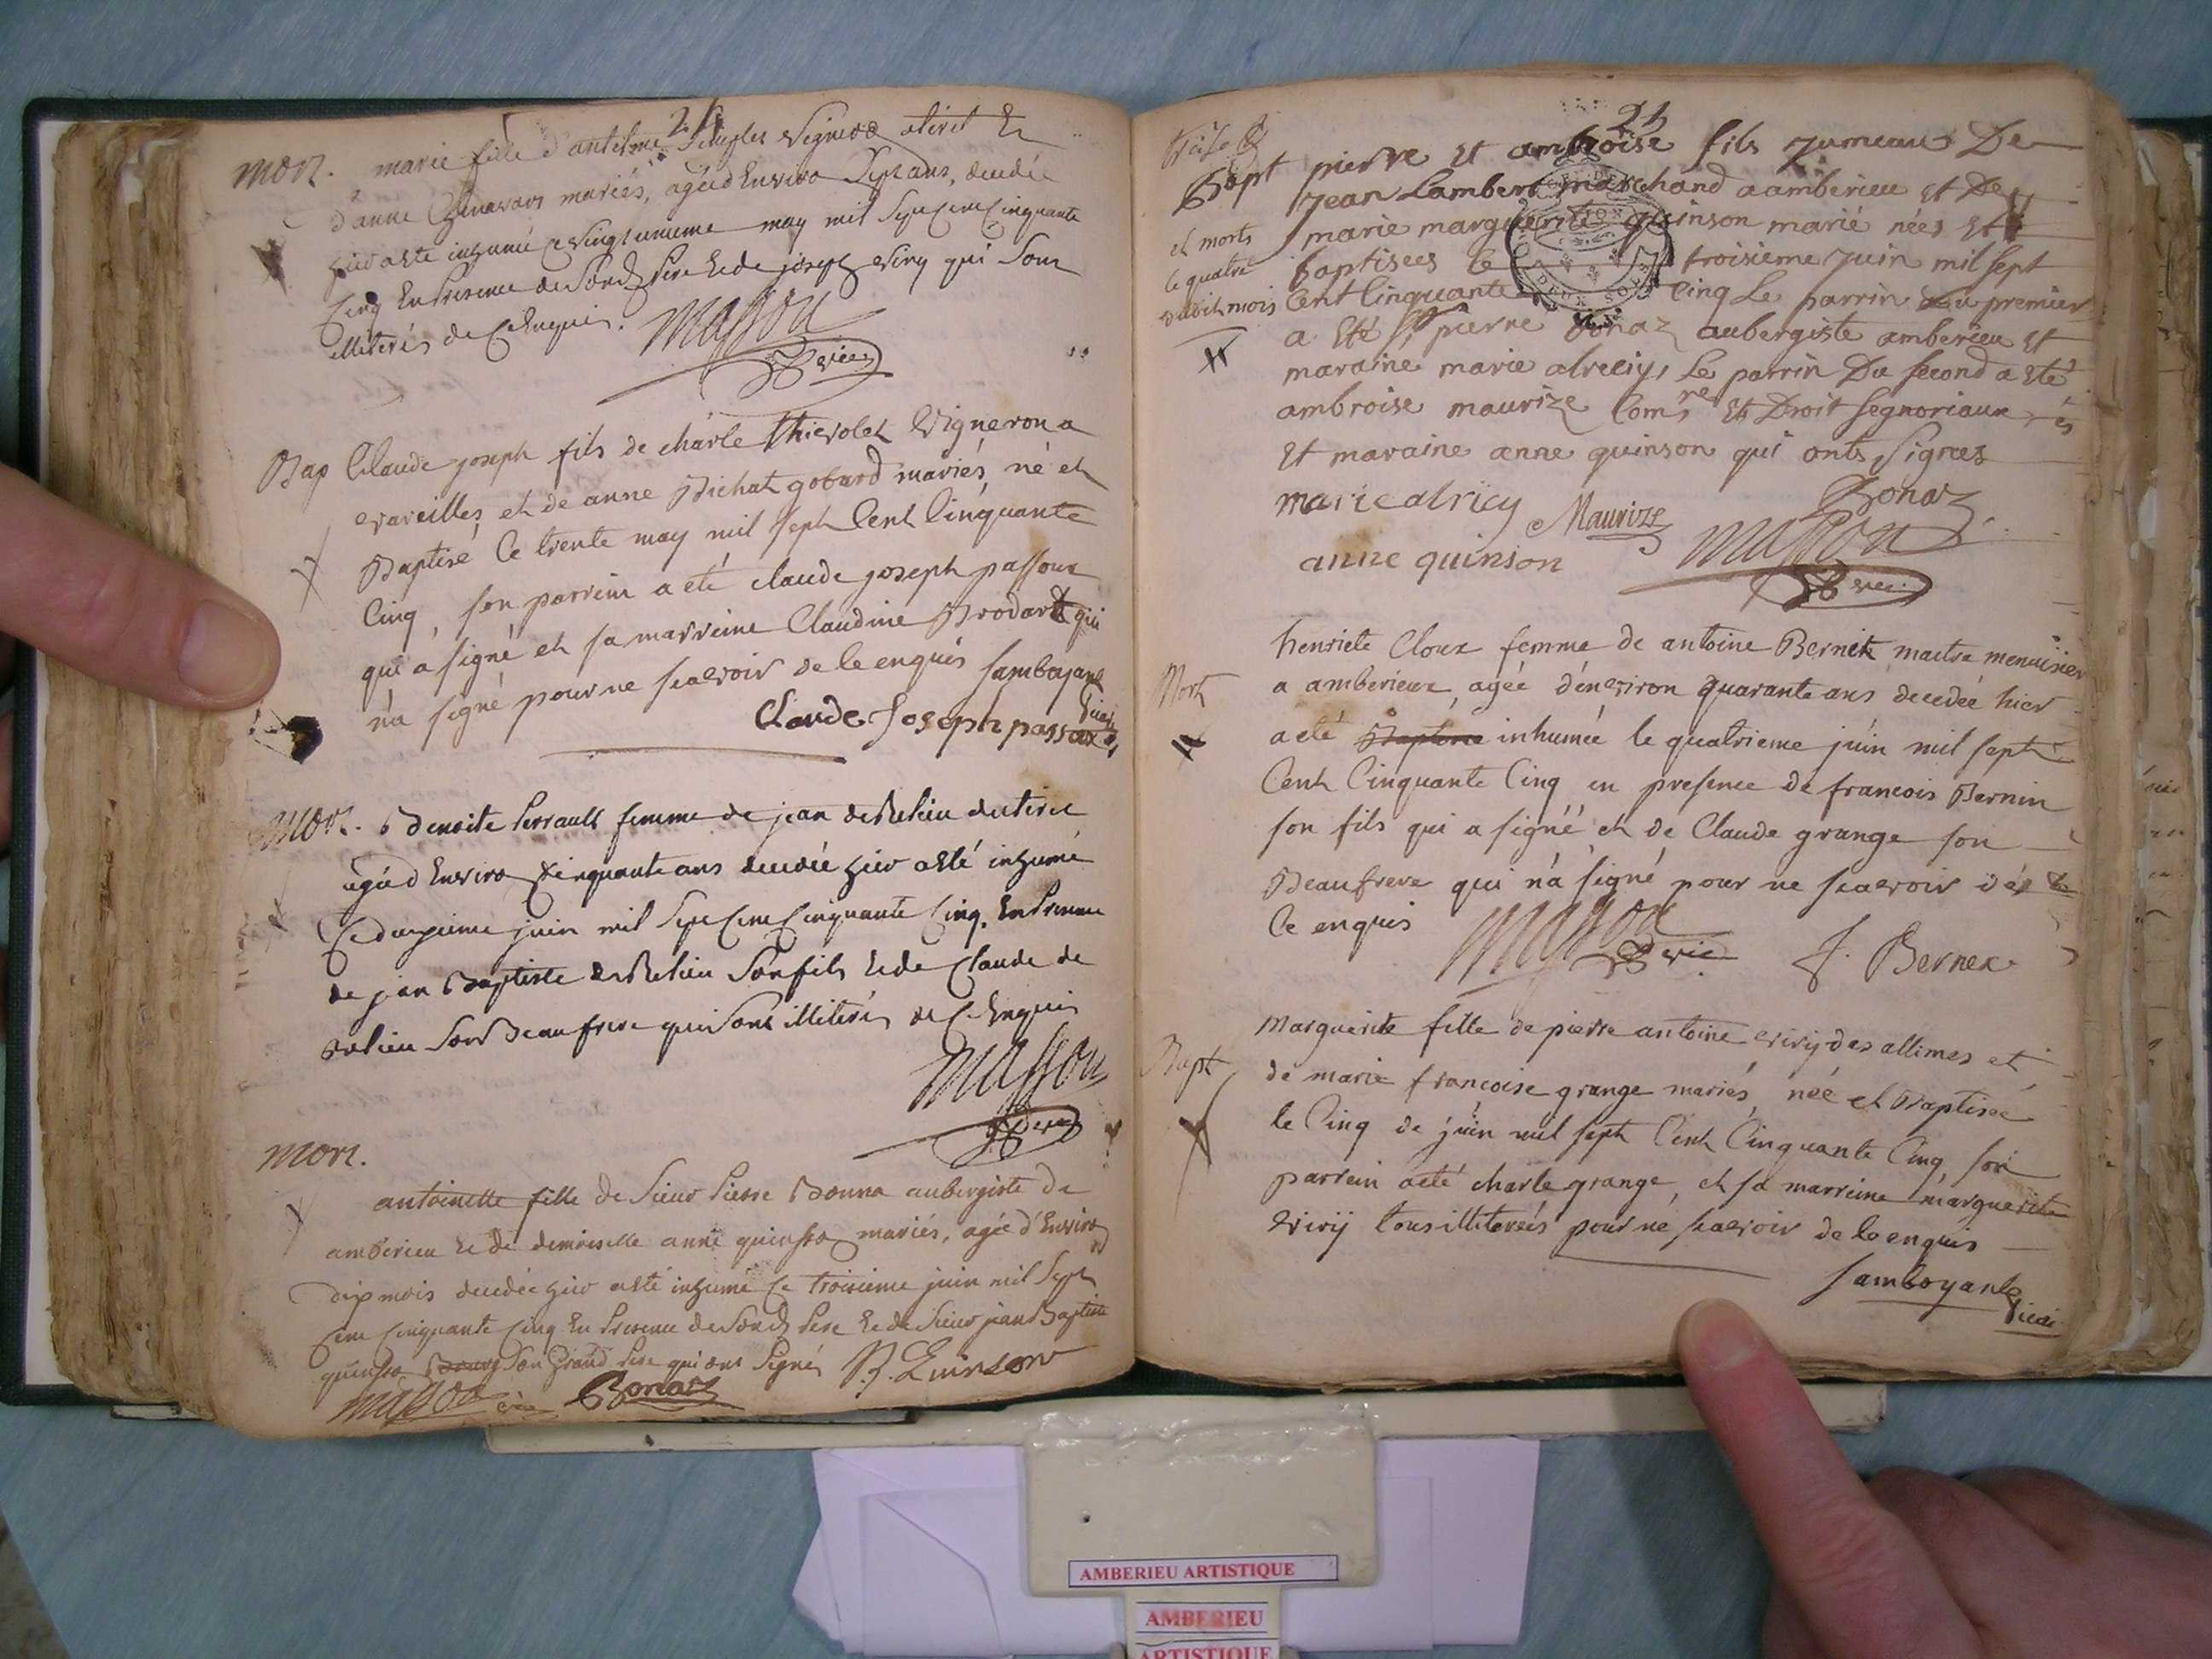 24
mort. marie fille d'antelme vigneron et
d'anne mariés, agée d'environ sept ans, decedée
hier a esté inhumé ce vingt unieme may mil sept cent cinquante
cinq en presence de son d. pere et de joseph viry qui sont
illiterés de ce enquis. Masson
Bap Claude joseph fils de charle thievolet vigneron a
vareilles et de anne Bichat gobard mariés, né et
Baptisé ce trente may mil sept Cent Cinquante
Cinq, son parrein a eté claude joseph passoux
qui a signé et sa marreine Claudine Brodard qui
n'a signé pour ne scavoir de le enquis Jamboyant
vicai
Claude Joseph passoux
mort. Benoite perrault femme de jean de
agée d'environ cinquante ans decedée hier a esté inhumé
ce deuxieme juin mil sept cent cinquante cinq. en presence
de jean Baptiste son fils et de Claude de
son Beaufrere qui sont illiterés de ce enquis
Masson
mort.
antoinette fille de sieur pierre Bonna aubergiste de
amberieu et de demoiselle anne quinson mariés, agée d'environ
dix mois decedée hier a esté inhumé ce troisieme juin mil sept
cent cinquante cinq en presence de son d. pere et de sieur jean Baptiste
quinson son Grand pere qui ont signé J.B. Quinson
Masson Bonaz
24
Bapt pierre et ambroise fils jumeaux De
et morts
le quatre
dudit mois
jean Lambert marchand a amberieu et De
marie marguerite quinson marié nées et
baptisees le troisieme juin mil sept
Cent Cinquante Cinq Le parrin du premier
a Eté Sr pierre Bonaz aubergiste amberieu et
maraine marie alricy, Le parrin Du second a eté
ambroise maurize Comre Et Droit segnoriaux
Et maraine anne quinson qui onts Signes
marie alricy Maurize Bonaz
anne quinson Masson
Mort
henriete Cloux femme de antoine Bernex maitre menuisier
a amberieux agée d'environ quarante ans decedée hier
a eté Baptisée inhumée le quatrieme juin mil sept
Cent Cinquante Cinq en presence de francois Bernin
son fils qui a signé et de Claude grange son
Beaufrere qui n'a signé pour ne scavoir de
Ce enquis Masson
F. Bernex
Bapt
Marguerite fille de pierre antoine viriy des allimes et
de marie francoise grange mariés, née et Baptisée
le Cinq de juin mil sept Cent Cinquante Cinq, son
parrein a eté charle grange, et sa marreine marguerite
viriy tous illiterées pour ne scavoir de le enquis
Jamboyant
vicai
AMBERIEU ARTISTIQUE
AMBERIEU
ARTISTIQUE